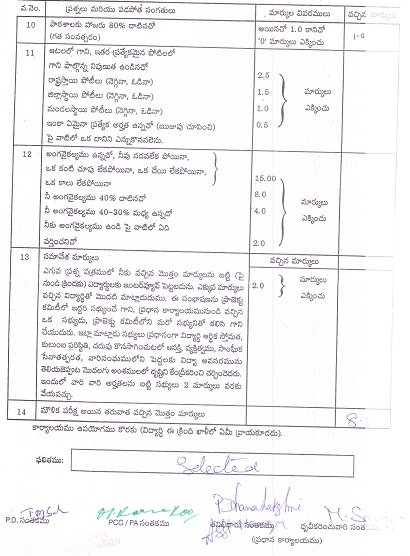 వ.నెం. ప్రశ్నలు మరియు వడపోత సంగతులు మార్కుల వివరములు వచ్చిన మార్కులు
10 పాఠశాలకు హాజరు 80% దాటినచో అయినచో 1.0 కానిచో
(గత సంవత్సరం) '0' మార్కులు ఎక్కించు
11 ఆటలలో గాని, ఇతర ప్రత్యేకమైన పోటీలలో
గాని పాల్గొన్న నిపుణుత ఉండినచో 2.5
రాష్ట్రస్థాయి పోటీలు (నెగ్గినా, ఓడినా) మార్కులు
జిల్లాస్థాయి పోటీలు (నెగ్గినా, ఓడినా) 1.5
మండలస్థాయి పోటీలు (నెగ్గినా, ఓడినా) 1.0 ఎక్కించు
ఇంకా ఏమైనా ప్రత్యేక అర్హత ఉన్నచో (ఋజువు చూపించి) 0.5
పై వాటిలో ఒక దానిని ఎన్నుకొనవలెను.
12 అంగవైకల్యము ఉన్నచో, నీవు నడవలేక పోయినా,
ఒక కంటి చూపు లేకపోయినా, ఒక చేయి లేకపోయినా,
ఒక కాలు లేకపోయినా 15.00
నీ అంగవైకల్యము 40% దాటినచో 8.0 మార్కులు
నీ అంగవైకల్యము 40-30% మధ్య ఉన్నచో 4.0
నీకు అంగవైకల్యము ఉండి పై వాటిలో ఏది ఎక్కించు
వర్తించనిచో 2.0
13 సమావేశ మార్కులు వచ్చిన మార్కులు
ఎగువ ప్రశ్న పత్రములో నీకు వచ్చిన మొత్తం మార్కులను బట్టి (పై
నుండి క్రిందకు) ఎద్యార్థులకు ఇంటర్వ్యూవ్ పెట్టబడును. ఎక్కువ మార్కులు 2.0 మార్కులు
వచ్చిన విద్యార్థితో మొదటి మాట్లాడుదుము. ఈ సంభాషణను ప్రాజెక్టు ఎక్కించు
కమిటీలో ఇద్దరి సభ్యులచే గాని, ప్రధాన కార్యాలయమునుండి వచ్చిన
ఒక సభ్యుడు, ప్రాజెక్టు కమిటీలోని మరో సభ్యునితో కలిసి గాని
చేయుదురు. ఇట్లు మాట్లాడు సభ్యులు ప్రధానంగా విద్యార్థి ఆర్థిక స్తోమత,
కుటుంబ పరిస్థితి, చదువు కొనసాగించుటలో ఆసక్తి, వ్యక్తిత్వము, సాంఘిక
సేవాతత్పరత, వారిసంఘములోని పెద్దలకు విద్యా అవసరమును
తెలియజెప్పుట మొదలగు అంశములలో దృష్టిని కేంద్రీకరించి చర్చించెదరు.
ఇందులో వారి వారి అర్హతలను బట్టి సభ్యులు 2 మార్కులు వరకు
వేయవచ్చు.
14 మౌఖిక పరీక్ష అయిన తరువాత వచ్చిన మొత్తం మార్కులు 8
కార్యాలయము ఉపయోగము కొరకు (విద్యార్థి ఈ క్రింది ఖాళీలో ఏమీ వ్రాయకూడదు).
ఫలితము: Selected
P.D. సంతకము PCC / PA సంతకము సంతకము ధృవీకరించువారి సంతకము
(ప్రధాన కార్యాలయము)